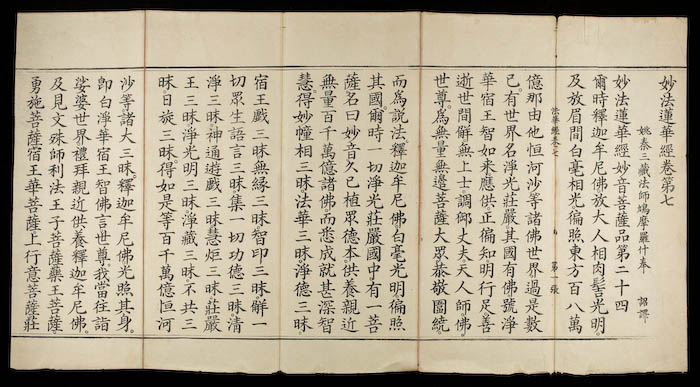 妙法蓮華經卷第七
姚秦三藏法師鳩摩羅什奉 詔譯
妙法蓮華經妙音菩薩品第二十四
爾時釋迦牟尼佛放大人相肉髻光明。
及放眉間白毫相光徧照東方百八萬
法華經卷七 第一張
億那由他恒河沙等諸佛世界過是數
已。有世界名淨光莊嚴其國有佛號淨
華宿王智如來應供正徧知明行足善
逝世間解無上士調御丈夫天人師佛
世尊。為無量無邊菩薩大眾恭敬圍繞。
而為說法。釋迦牟尼佛白毫光明徧照
其國。爾時一切淨光莊嚴國中有一菩
薩名曰妙音久已植眾德本供養親近
無量百千萬億諸佛而悉成就甚深智
慧。得妙幢相三昧。法華三昧淨德三昧
宿王戲三昧無緣三昧智印三昧解一
切眾生語言三昧集一切功德三昧清
淨三昧神通遊戲三昧慧炬三昧莊嚴
王三昧淨光明三昧淨藏三昧不共三
昧日旋三昧。得如是等百千萬億恒河
沙等諸大三昧。釋迦牟尼佛光照其身。
即白淨華宿王智佛言世尊我當往詣
娑婆世界禮拜親近供養釋迦牟尼佛。
及見文殊師利法王子菩薩藥王菩薩。
勇施菩薩宿王華菩薩上行意菩薩莊